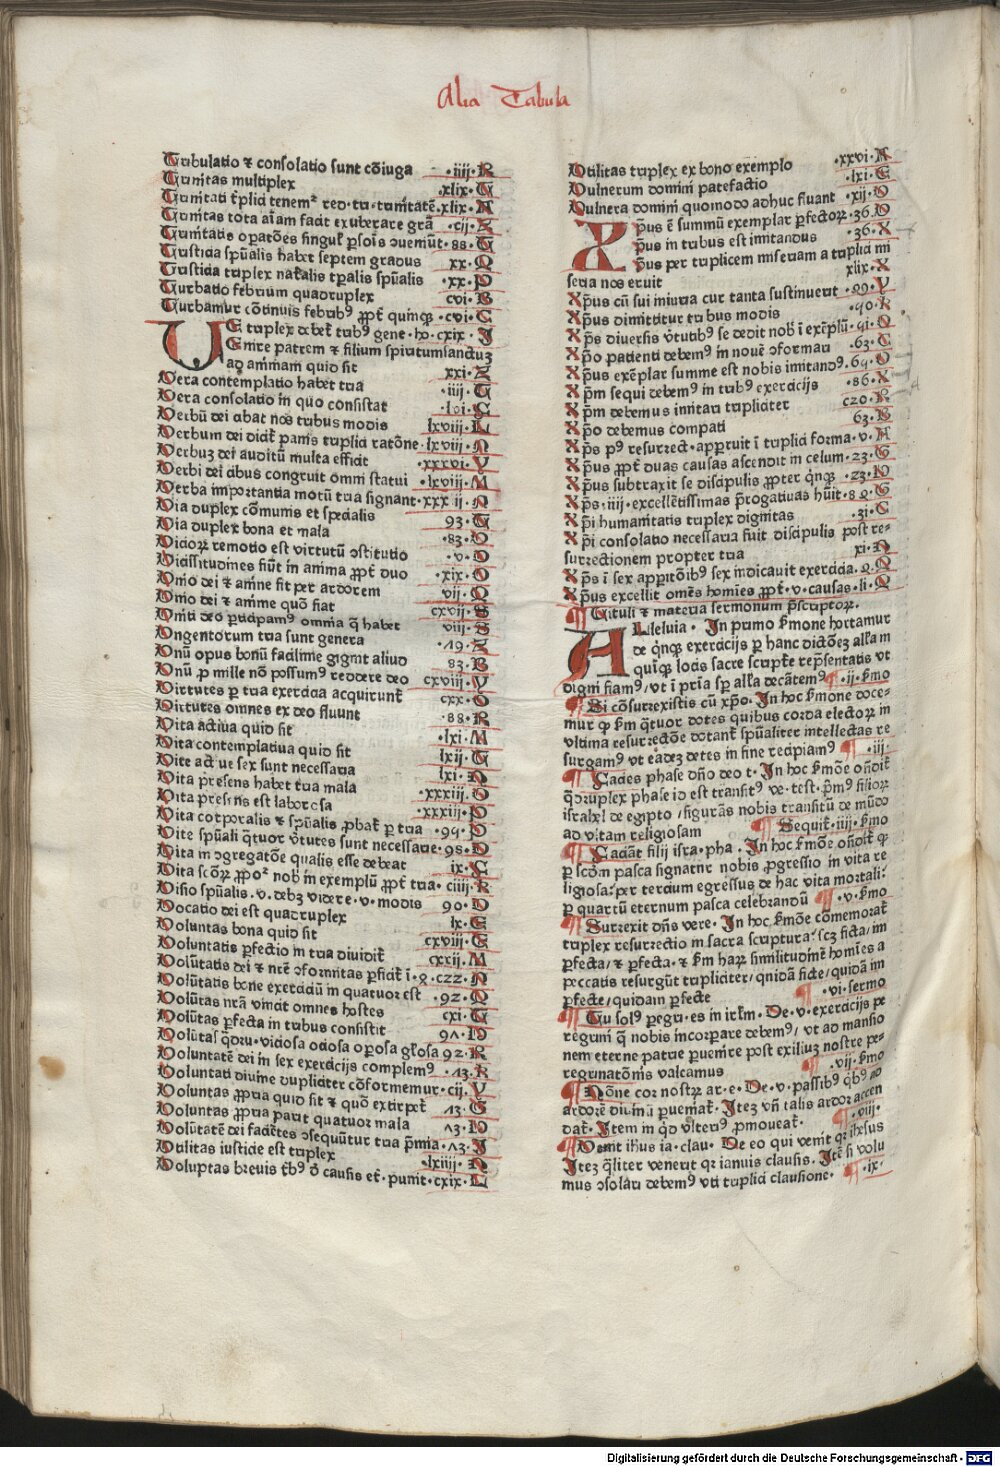 Alia Tabula
Tribulatio ⁊ consolatio sunt cõiuga ·iiij·R
Trinitas multiplex ·xlix·G
Trinitati t̃plici tenem᷑ red·tri·trinitatẽ·xlix·A
Trinitas tota aĩam facit exuberare grã ·cij·
Trinitatis opatões singul̃ ꝑsõis ↄueniũt·88·G
Tristicia spũalis habet septem gradus xx·O
Tristicia triplex nat̃alis tꝑalis spũalis ·xx·P
Turbatio febrium quadruplex cvi·B
Turbamur cõtinuis febribꝰ ꝓpt̃ quinqꝫ ·cvi·C
VE triplex debet̃ tribꝰ gene·ho·cxix·J
Enire patrem ⁊ filium spiritumsanctuꝫ
ad animam quid sit xxi·A
Vera contemplatio habet tria ·iiij·G
Vera consolatio in quo consistat
Verbũ dei cibat nos tribus modis lxviii·L
Verbum dei dicit̃ panis triplici ratõne·lxviii·N
Verbuꝫ dei auditũ multa efficit ·xxxvi·V
Verbi dei cibus congruit omni statui ·lxviii·M
Verba importantia motũ tria signant·xxxii·N
Via duplex cõmunis et specialis 93·G
Via duplex bona et mala ·83·O
Vicioꝝ remotio est virtutũ ↄstitutio ·v·O
Vicissitudines fiũt in anima ꝓpt̃ duo ·xix·O
Vnio dei ⁊ anime fit per ardorem vij·O
Vnio dei ⁊ anime quõ fiat cxvij·S
Vniti deo ꝑticipamꝰ omnia q̃ habet viij·S
Vngentorum tria sunt genera ·19·A
Vnũ opus bonũ facilime gignit aliud 83·B
Vnũ ꝓ mille nõ possumꝰ reddere deo cxviij·V
Virtutes per tria exercicia acquirunt̃ cxx·O
Virtutes omnes ex deo fluunt ·88·R
Vita actiua quid sit ·lxi·M
Vita contemplatiua quid sit lxij·G
Vite actiue sex sunt necessaria lxi·N
Vita presens habet tria mala ·xxxiij·O
Vita presens est laboriosa ·xxxiij·P
Vita corporalis ⁊ spũalis ꝓbat̃ ꝑ tria ·94·P
Vite spũali q̃tuor v̓tutes sunt necessarie·98·O
Vita in ↄgregatõe qualis esse debeat ix·C
Vita scõꝝ ꝓpo᷑ nob̃ in exemplũ ꝓpt̃ tria·ciiij·R
Visio spũalis·v·debꝫ videre·v·modis 90·D
Vocatio dei est quadruplex lx·E
Voluntas bona quid sit cxviij·E
Voluntatis ꝑfectio in tria diuidit̃ cxxij·M
Volũtatis dei ⁊ nrẽ ↄformitas ꝑficit̃ ĩ·9·czz·N
Volũtatis bone exerciciũ in quatuor est ·92·O
Volũtas nrã vincit omnes hostes cxi·G
Volũtas ꝑfecta in tribus consistit 91·D
Volũtas q̃dru·viciosa ociosa oꝑosa gl̃osa 92·R
Voluntatẽ dei in sex exercicijs complemꝰ ·13·R
Voluntati diuine dupliciter cõformemur·cij·V
Voluntas ꝓpria quid sit ⁊ quõ extirpet̃ 13·G
Voluntas ꝓpria parit quatuor mala 13·D
Volũtatẽ dei faciẽtes ↄsequũtur tria p̃mia·13·J
Vtilitas iusticie est triplex ·lxiiij·N
Voluptas breuis t̃bꝰ ð causis et·punit·cxix·L
Vtilitas triplex ex bono exemplo ·xxvi·A
Vulnerum domini patefactio ·lxi·E
Vulnera domini quomodo adhuc fluant ·xij·O
Xp̃us ẽ summũ exemplar ꝑfectoꝝ·36·O
p̃us in tribus est imitandus ·36·X
p̃us per triplicem miseriam a triplici mi
seria nos eruit xlix·X
Xp̃us cũ sui iniuria cur tanta sustinuerit ·99·V
Xp̃us dimittitur tribus modis ·90·R
Xp̃s diuersis v̓tutibꝰ se dedit nob̃ ĩ exẽplũ·91·O
Xp̃o patienti debemꝰ in nouẽ ↄformari ·63·C
Xp̃us exẽplar summe est nobis imitandꝰ·64·O
Xp̃m sequi debemꝰ in tribꝰ exercicijs ·86·X
Xp̃m debemus imitari tripliciter c20·R
Xp̃o debemus compati 63·B
Xp̃s pꝰ resurrect·apparuit ĩ triplici forma·v·A
Xp̃us ꝓpt̃ duas causas ascendit in celum·23·G
Xp̃us subtraxit se discipulis ꝓpter q̃nqꝫ ·23·D
Xp̃s·iiij·excellẽtissimas p̃rogatiuas hũit·89·G
Xp̃i humanitatis triplex dignitas ·31·C
Xp̃i consolatio necessaria fuit discipulis post re-
surrectionem propter tria xi·N
Xp̃s ĩ sex appitõibꝰ sex indicauit exercicia·9·Q
Xp̃us excellit omẽs homĩes ꝓpt̃·v·causas·li·Q
¶ Tituli ⁊ materia sermonum p̃scriptoꝝ.
ALleluia. In primo s̃mone hortamur
de q̃nqꝫ exercicijs ꝑ hanc dictõeꝫ all̓a in
quĩqꝫ locis sacre script̃e repñtatis vt
digni fiamꝰ/vt ĩ pr̃ia sp̃ all̓a decãtemꝰ ¶·ij·s̃mo
¶ Si cõsurrexistis cũ xp̃o. In hoc s̃mone doce-
mur qꝫ s̃m q̃tuor dotes quibus corda electoꝝ in
vltima resurrectõe dotant̃ spũaliter intellectas re
surgamꝰ vt eãdeꝫ dotes in fine recipiamꝰ ¶·iij·
¶ Facies phase dño deo t·In hoc s̃mõe oñdit̃
q̃druplex phase id est transit̃ ve·test·p̃mꝰ filioꝝ
israhel de egipto/figurãs nobis transitũ de mũdo
ad vitam religiosam ¶ Sequit̃·iiij·s̃mo
¶ Faciãt filij isra·pha. In hoc s̃mõe oñdit̃ qꝫ
ꝑ scðm pasca signatur nobis ꝓgressio in vita re
ligiosa:per tercium egressus de hac vita mortali:
ꝑ quartũ eternum pasca celebrandũ ¶·v·s̃mo
¶ Surrexit dñs vere. In hoc s̃mõe cõmemorat̃
triplex resurrectio in sacra scriptura:scꝫ ficta/im
ꝑfecta/⁊ ꝑfecta·⁊ s̃m haꝝ similitudinẽ homĩes a
peccatis resurgũt tripliciter/quidã ficte/quidã im
ꝑfecte/quidam ꝑfecte ¶·vi·sermo
¶ Tu solꝰ peregri·es in irl̃m. De·v·exercicijs pe
regrini q̃ nobis incorpare debemꝰ/vt ad mansio
nem eterne patrie ꝑuenire post exiliuꝫ nostre pe-
regrinatõnis valeamus ¶·vij·s̃mo
¶ Nõne cor nostꝝ ar·e·De·v·passibꝰ q̃bꝰ ad
ardorẽ diuinũ ꝑueniat̃·Iteꝫ vñ talis ardor accen
dat̃·Item in q̃o vlteriꝰ ꝓmoueat̃· ¶·viij·
¶ Venit ihus ia·clau·De eo qui venit qꝛ ihesus
Iteꝫ q̃liter venerit qꝛ ianuis clausis. Itẽ si volu
mus ↄsolari debemꝰ vti triplici clausione· ¶·ix·
Digitalisierung gefördert durch die Deutsche Forschungsgemeinschaft - DFG